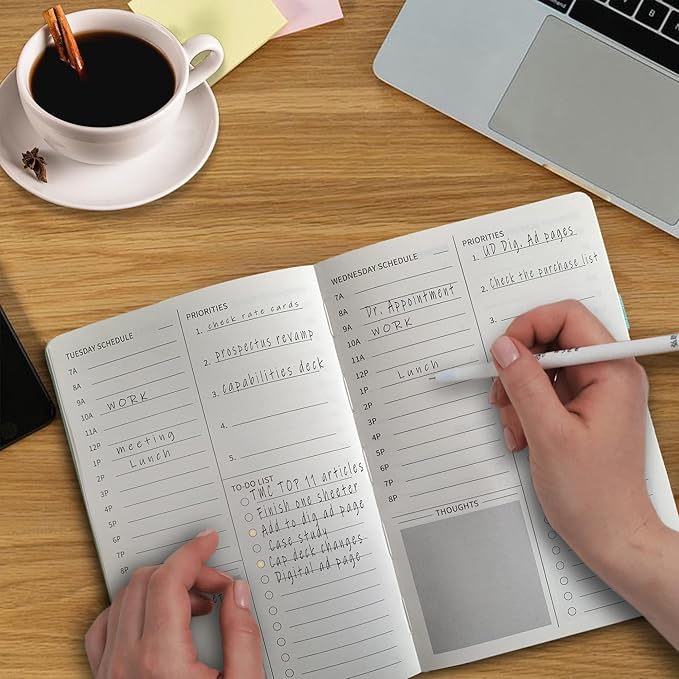 TUESDAY SCHEDULE
7A
8A
9A
10A WORK
11A
12P meeting
1P Lunch
2P
3P
4P
5P
6P
7P
8P
PRIORITIES
1. check rate cards
2. prospectus revamp
3. capabilities deck
4.
5.
TO-DO LIST
TMC TOP 11 articles
Finish one sheeter
Add to dig ad page
Case study
Cap deck changes
Digital ad page
WEDNESDAY SCHEDULE
7A
8A Dr. Appointment
9A WORK
10A
11A
12P
1P Lunch
2P
3P
4P
5P
6P
7P
8P
THOUGHTS
PRIORITIES
1. UD Dig. Ad pages
2. Check the purchase list
3.